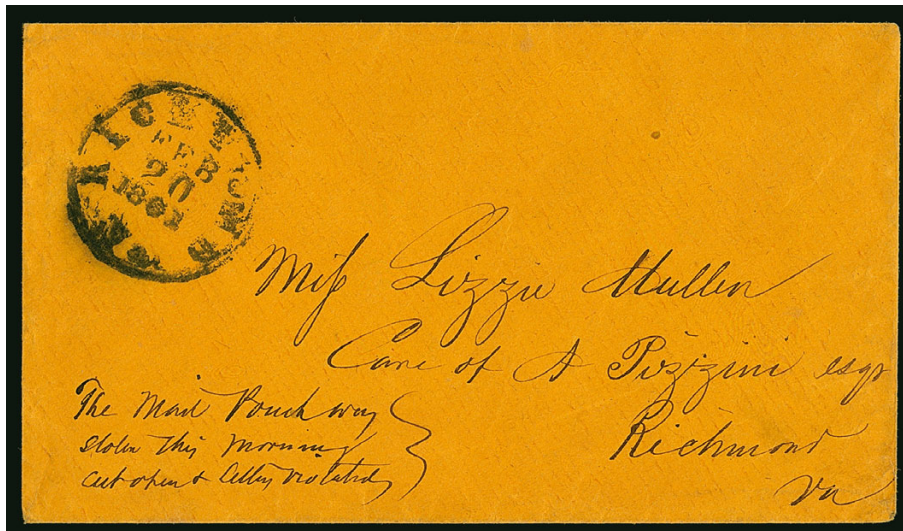 RICHMOND
FEB
20
186
VA.
Miſs Lizzie Mullen
Care of A Pizzini esqr
Richmond
Va
The Mail Pouch was
stolen this morning
cut open & letters violated